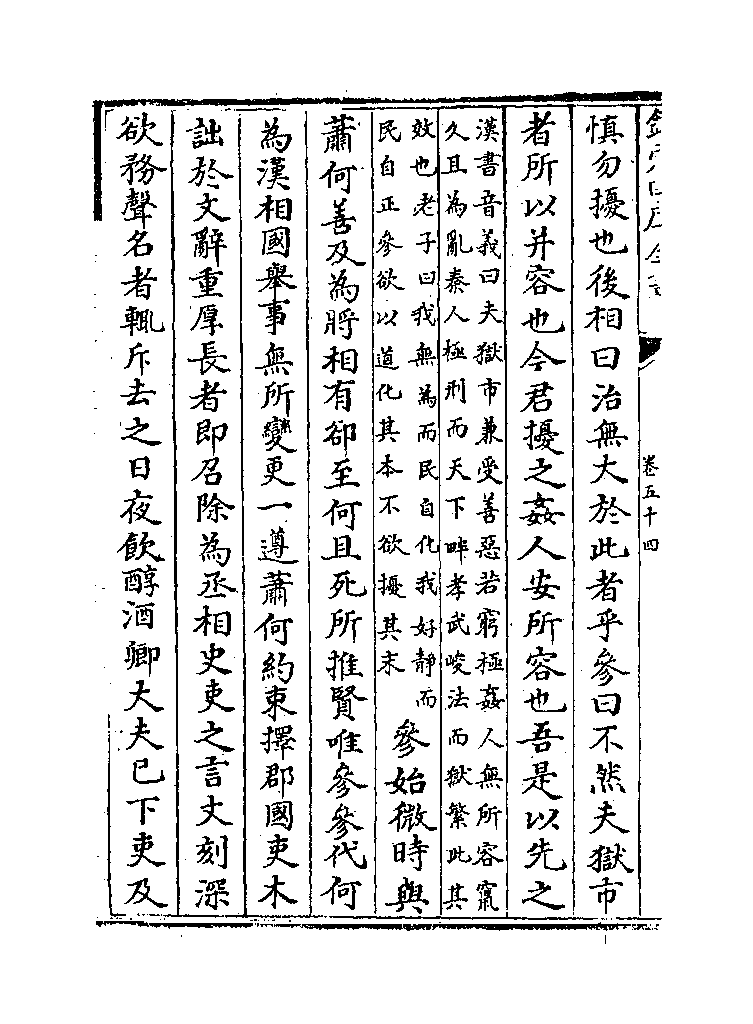 欽定四庫全書
卷五十四
慎勿擾也後相曰治無大於此者乎參曰不然夫獄市
者所以并容也今君擾之姦人安所容也吾是以先之
漢書音義曰夫獄市兼受善惡若窮極姦人無所容竄
久且為亂秦人極刑而天下畔孝武峻法而獄繁此其
效也老子曰我無為而民自化我好静而
民自正參欲以道化其本不欲擾其末
參始微時與
蕭何善及為將相有郤至何且死所推賢唯參參代何
為漢相國舉事無所變更一遵蕭何約束擇郡國吏木
詘於文辭重厚長者即召除為丞相史吏之言文刻深
欲務聲名者輒斥去之日夜飲醇酒卿大夫已下吏及